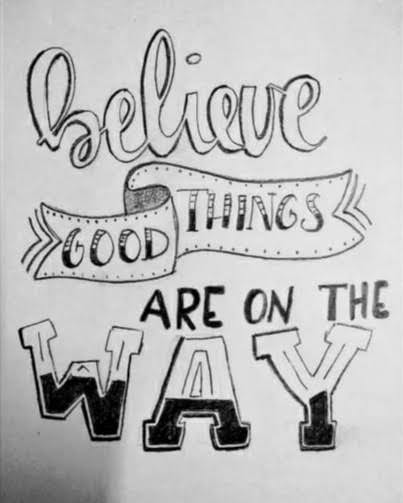 believe
GOOD THINGS
ARE ON THE
WAY